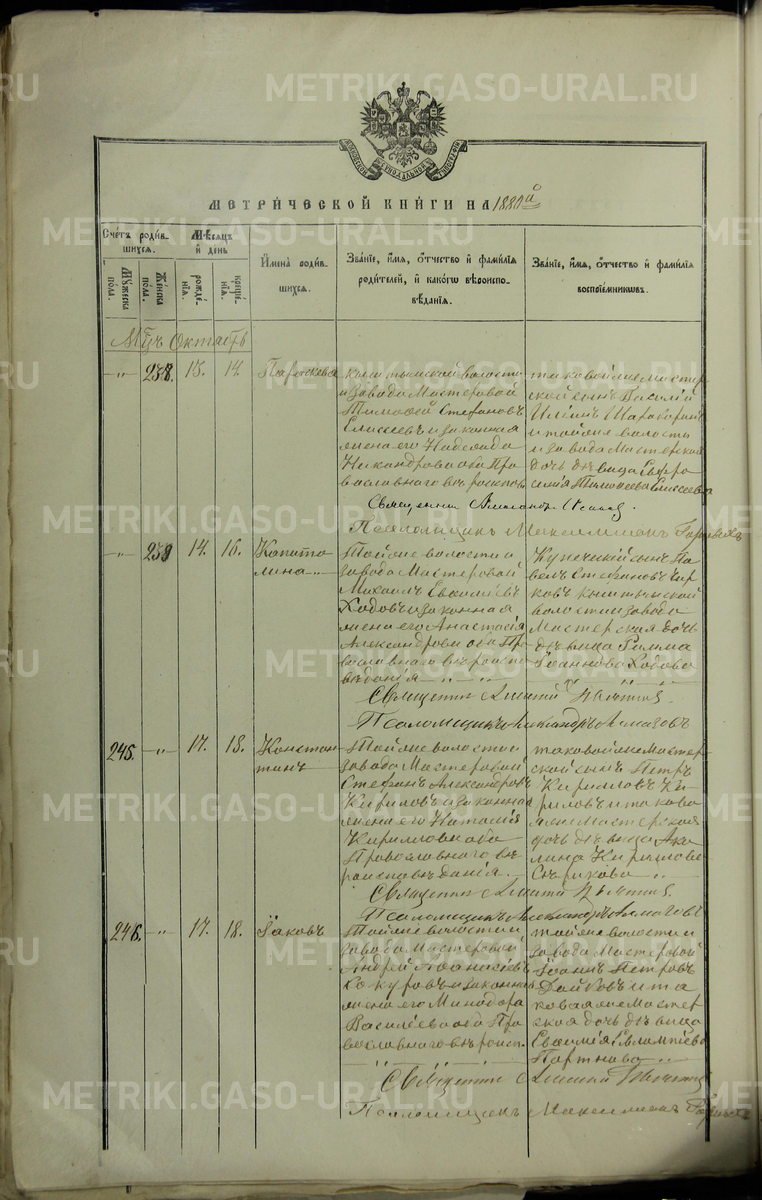 METRIKI.GASO-URAL.RU
МОСКОВСКОЙ СѴНОДАЛЬНОЙ ТИПОГРАФІИ
МЕТРИ́ЧЕСКОЙ КНИ́ГИ НА 188
Сче́тъ роди́в-
шихся.
Му́жеска по́ла.
Же́нска по́ла.
Мѣ́сяцъ
и҆ де́нь
рожде́-
нїя.
креще́-
нїя.
И҆мена̀ роди́в-
шихся.
Зва́нїе, и҆́мя, ѻ҆́тчество и҆ фами́лїя
роди́телей, и҆ како́гѡ вѣроиспо-
вѣ́данїя.
Зва́нїе, и҆́мя, ѻ҆́тчество и҆ фами́лїя
воспрїе́мникѡвъ.
Мцъ Октябрь
—〃— 238. 13. 14. Параскева
волости
и завода Мастеровой
Тимофей Стефановъ
Елисеевъ и законная
жена его Надежда
Никандрова оба Пра
вославнаго вѣроиспов.
таковой же Мастер
ской сынъ Василій
Ильинъ
и той же волости
и завода Мастерская
дочь дѣвица Евфро
синія Тимофеева Елисеева
Священникъ
Псаломщикъ Максимиліанъ
—〃— 239 14. 16. Капито
лина
Той же волости и
завода Мастеровой
Михаилъ Евфиміевъ
Ходовъ и законная
жена его Анастасія
Александрова оба Пра
вославнаго вѣроиспо
вѣданія
Купеческій сынъ Па
велъ Стефановъ Чир
ковъ Кыштымской
волости и завода
Мастерская дочь
дѣвица Римма
Іоаннова Ходова
Священникъ
Псаломщикъ Александръ Алмазовъ
245. —〃— 17. 18. Констан
тинъ
Той же волости и
завода Мастеровой
Стефанъ Александровъ
Кириловъ и законная
жена его Наталія
Кириллова оба
Православнаго вѣ
роисповѣданія.
таковой же Мастер
ской сынъ Петръ
Кириловъ Ки
риловъ и таково
же Мастерская
дочь дѣвица Аки
лина
Священникъ
Псаломщикъ Александръ Алмазовъ
246. —〃— 17. 18. Іаковъ
Той же волости и
завода Мастеровой
Андрей Афанасіевъ
Кокуровъ и законная
жена его Минодора
Василіева оба Пра
вославнаго вѣроисп.
той же волости и
завода Мастеровой
Іоаннъ Петровъ
и та
ковая же Мастер
ская дочь дѣвица
Евфимія Евлампіева
Портнова
Священникъ
Псаломщикъ Максимиліанъ